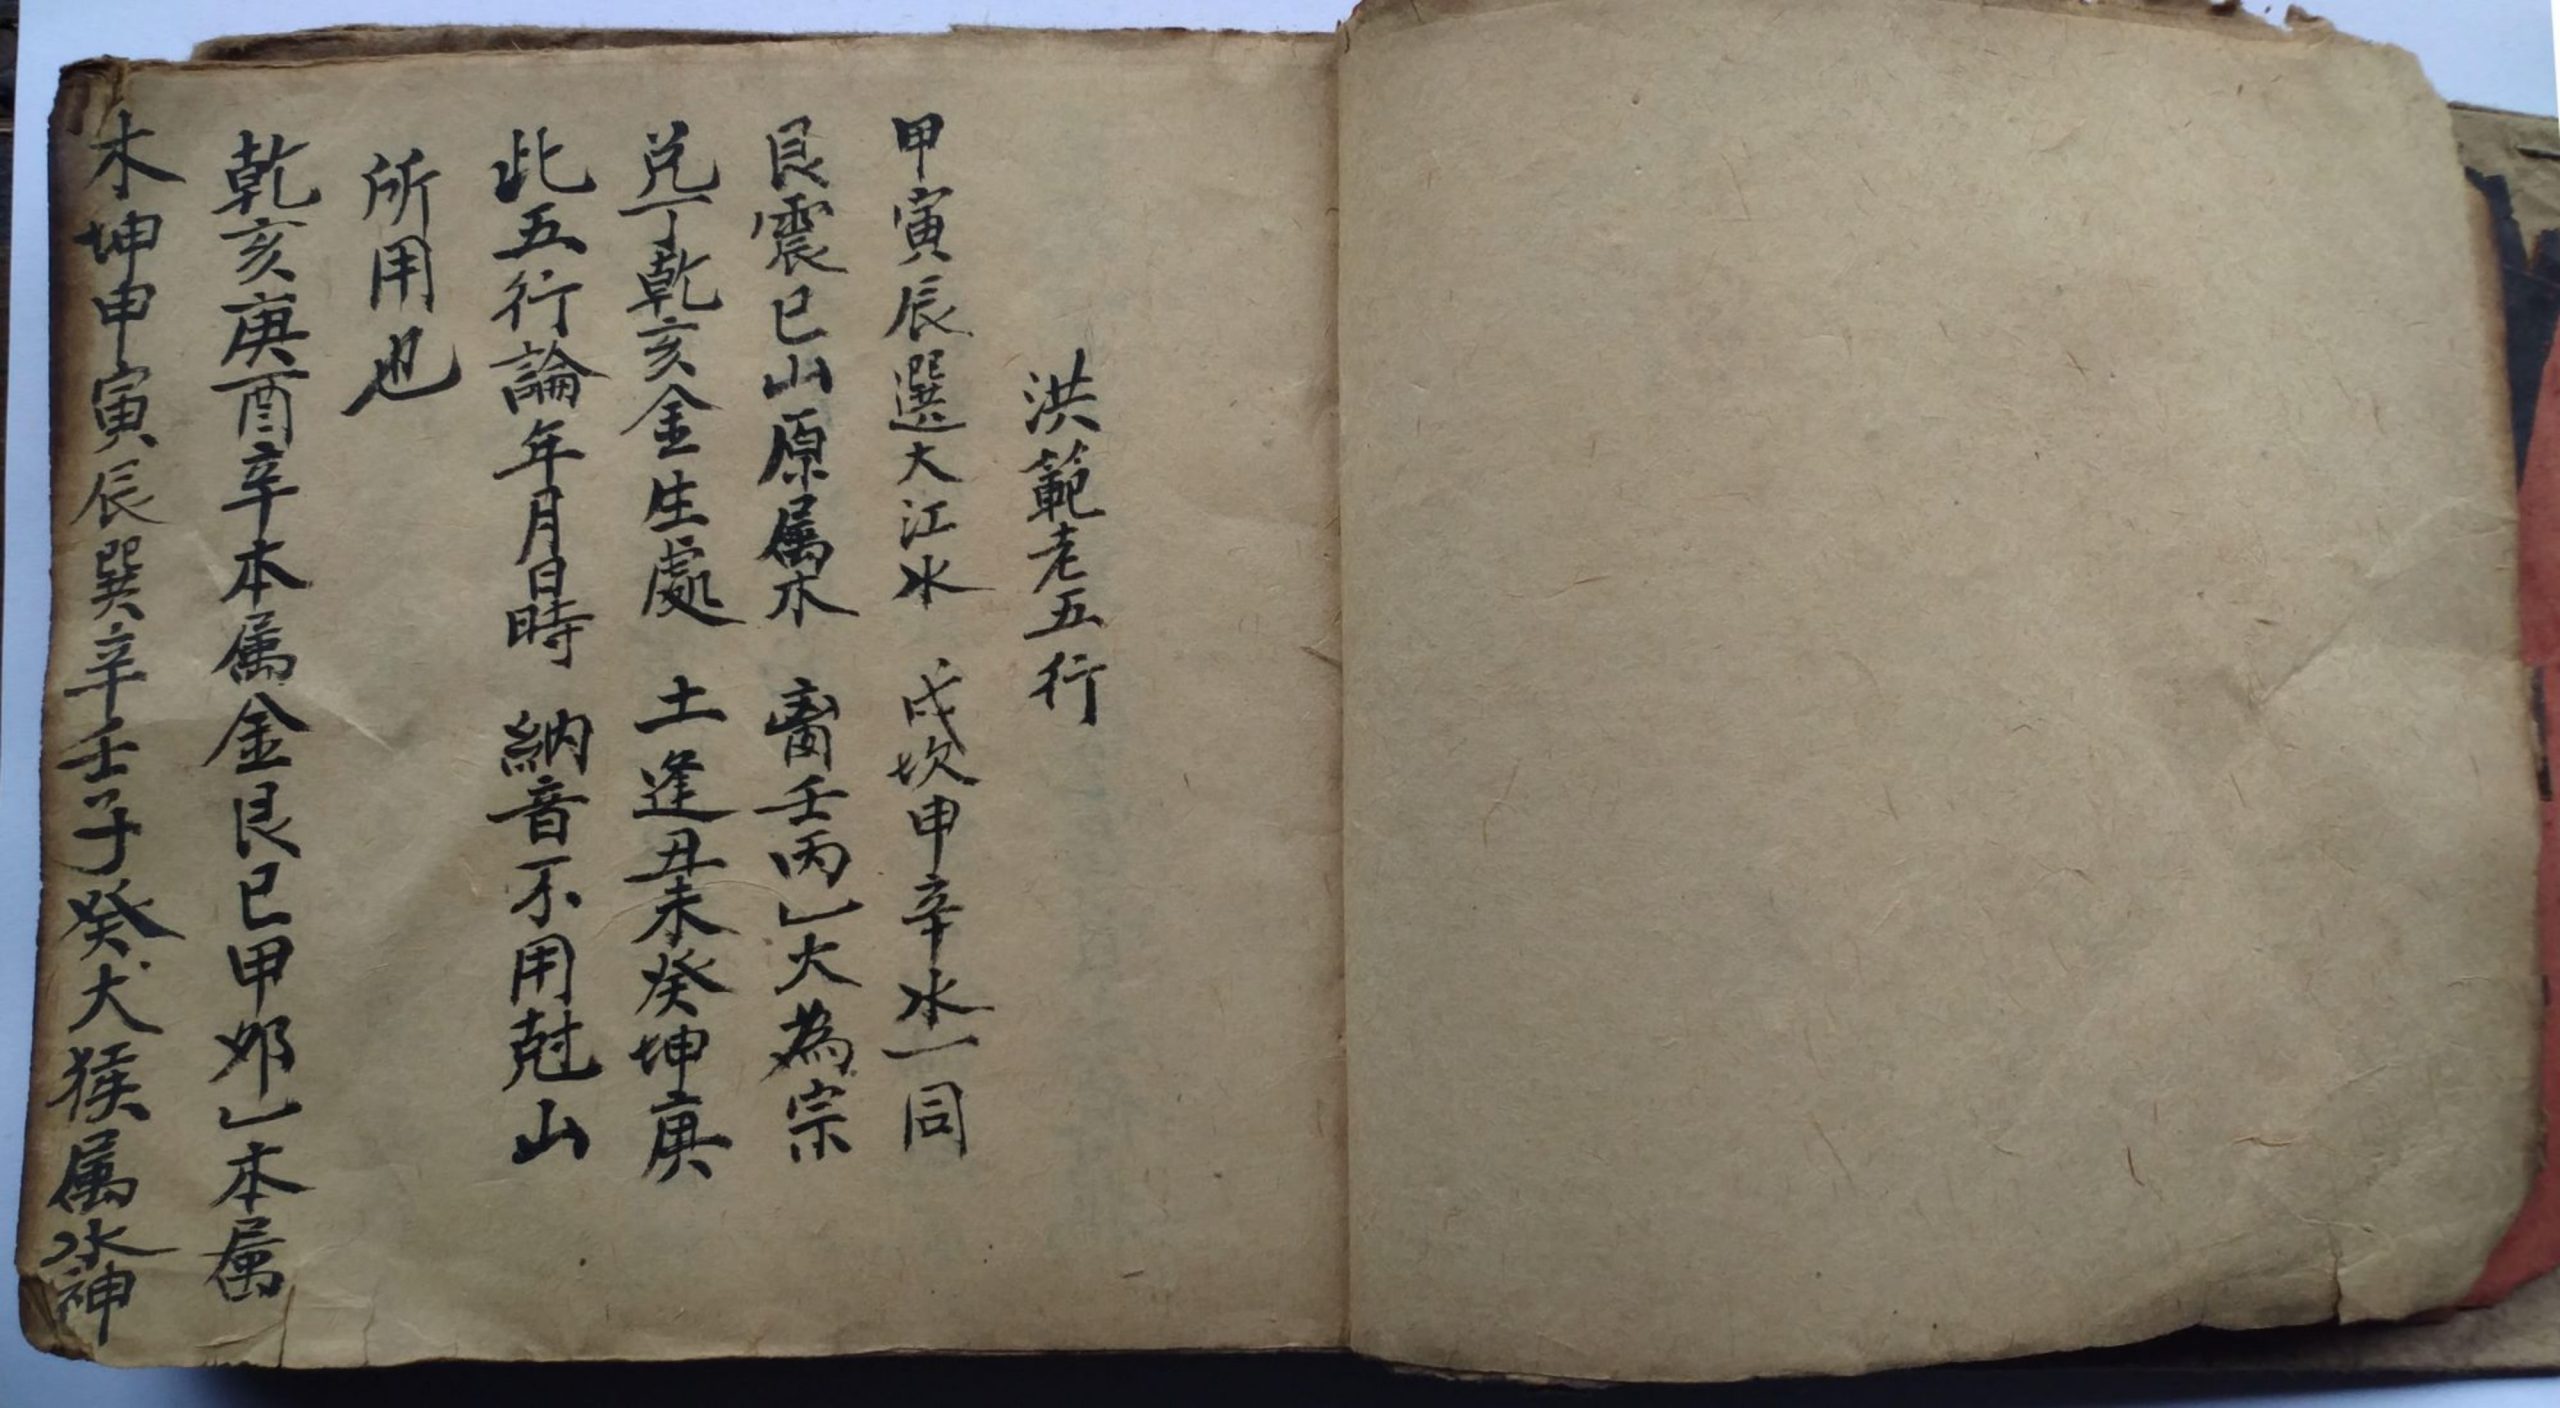 洪範老五行
甲寅辰選大江水 戌坎申辛水一同
艮震巳山原属木 离壬丙乚火為宗
兑丁乾亥金生處 土逢丑未癸坤庚
此五行論年月日時 納音不用尅山
所用也
乾亥庚酉辛本属金艮巳甲卯乚本属
木坤申寅辰巽辛壬子癸犬猴属水神